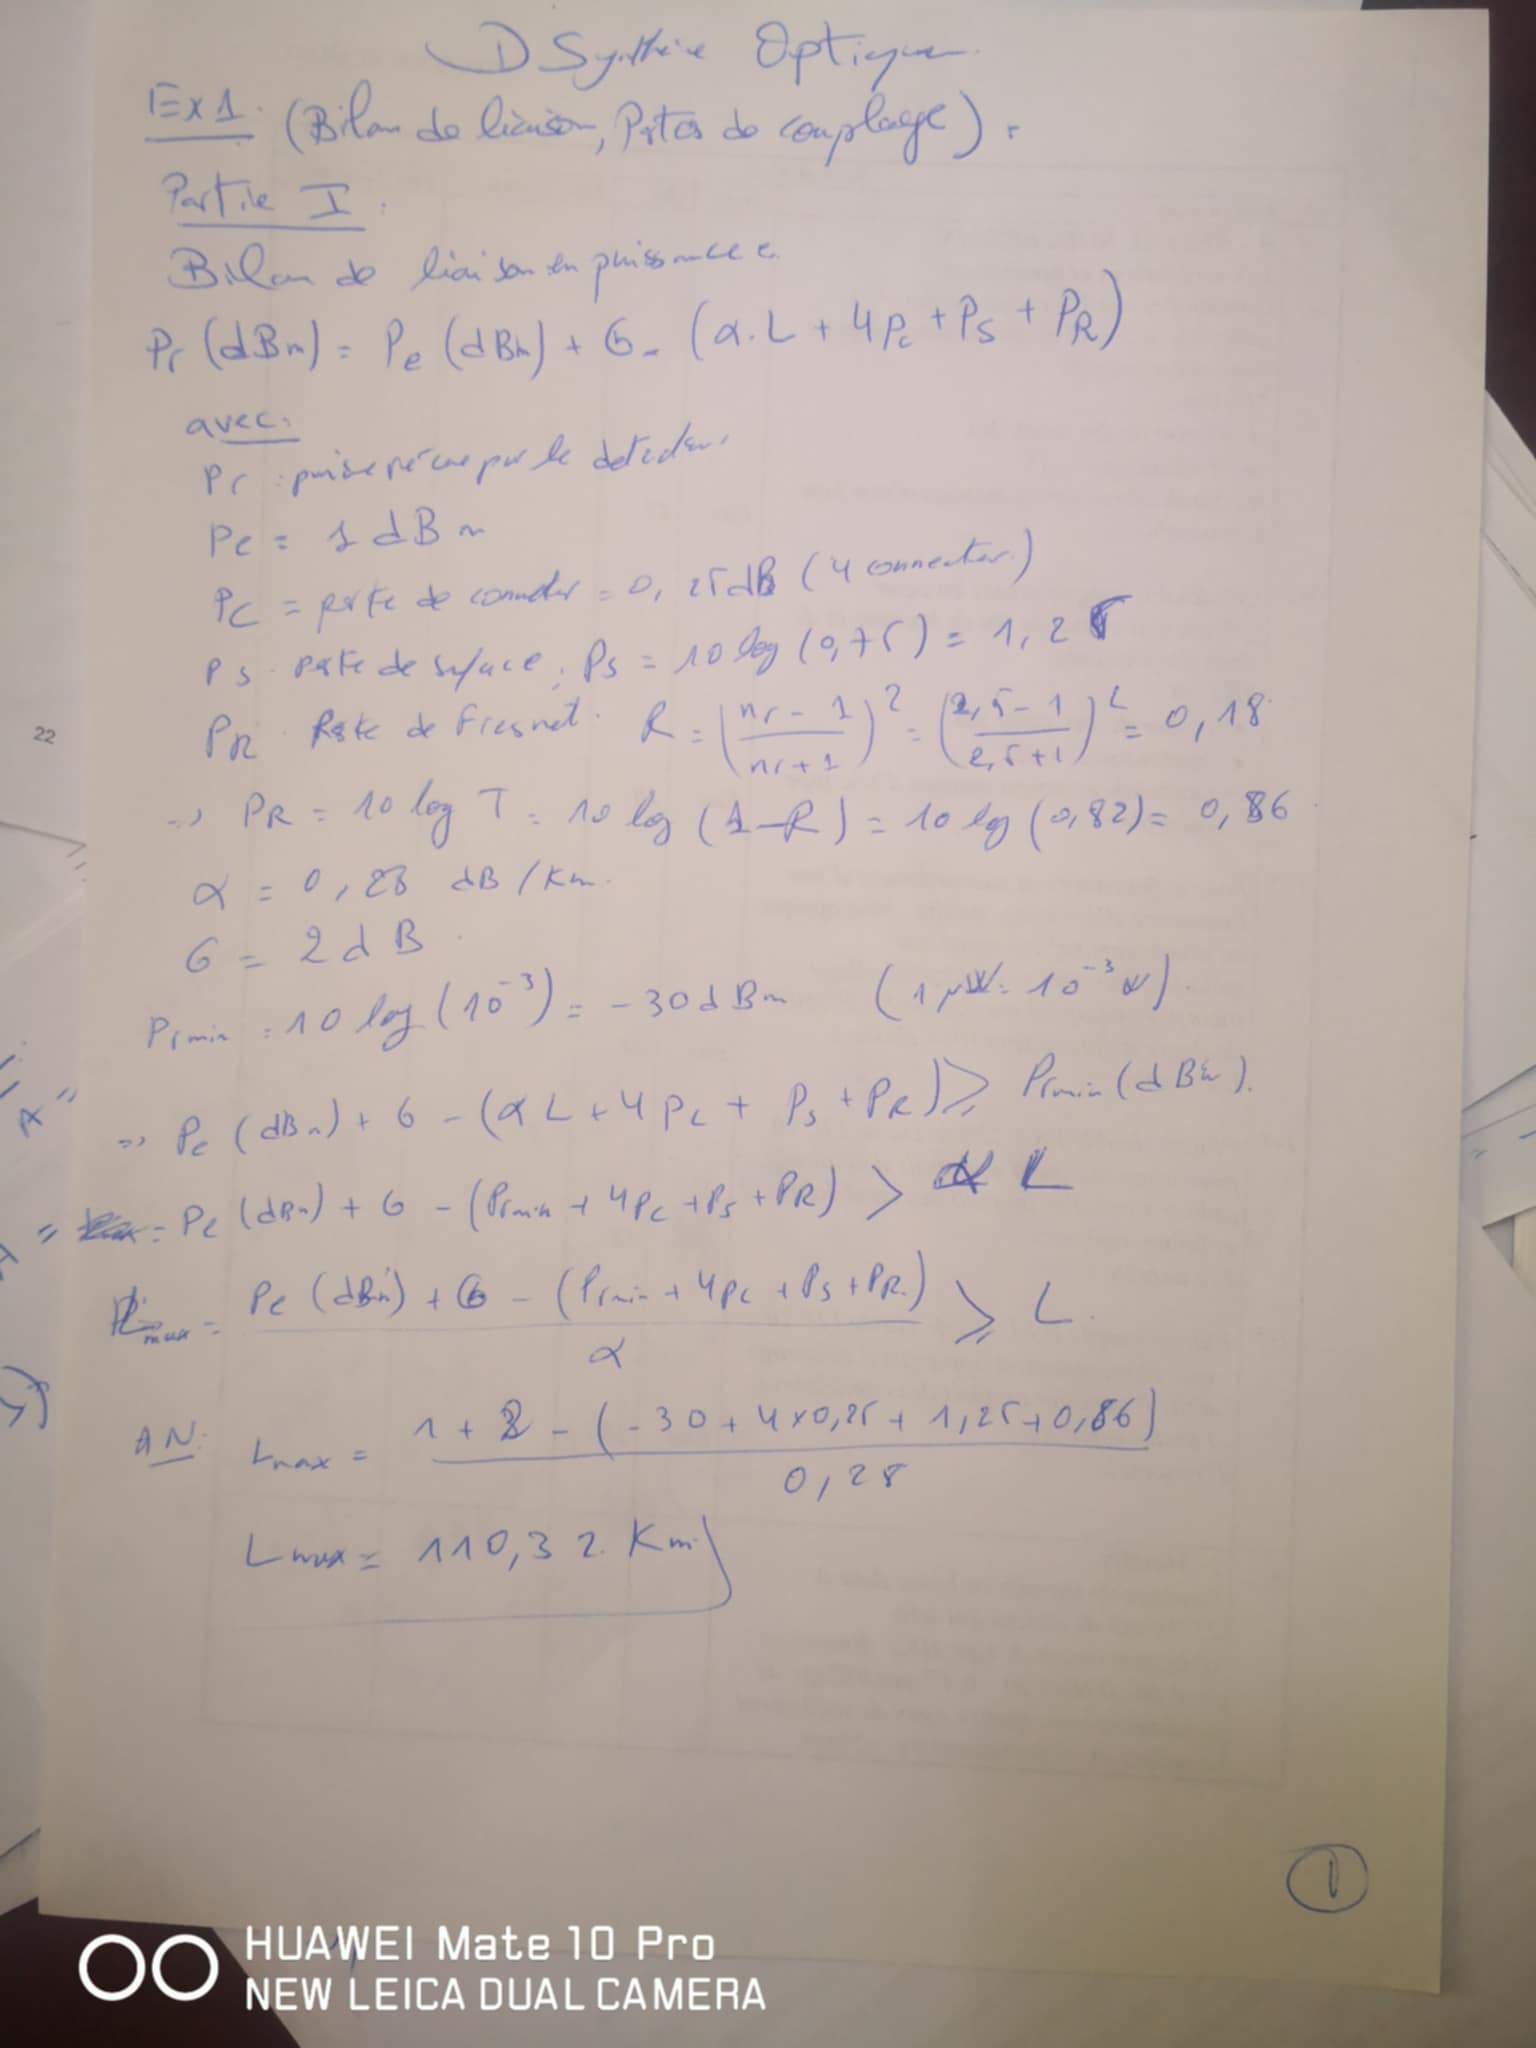 D Synthèse Optique.
Ex1. (Bilan de liaison, Pertes de couplage).
Partie I.
Bilan de liaison en puissance
Pr (dBm) = Pe (dBm) + G - (α.L + 4Pc + Ps + PR)
avec:
Pr : puisse reçue par le detecteur
Pe = 1 dBm
Pc = perte de connecteur = 0,25 dB (4 connecteurs)
Ps. perte de surface, Ps = 10 log (0,75) = 1,25
PR. Perte de Fresnel. R = (nr - 1 / nr + 1)² = (2,5 - 1 / 2,5 + 1)² = 0,18
22
=> PR = 10 log T = 10 log (1-R) = 10 log (0,82) = 0,86
α = 0,28 dB/Km.
G = 2 dB
Prmin = 10 log (10⁻³) = -30 dBm (1 µW = 10⁻³ W).
=> Pe (dBm) + G - (αL + 4Pc + Ps + PR) ≥ Prmin (dBm).
= Pe (dBm) + G - (Prmin + 4Pc + Ps + PR) > L
Lmax = Pe (dBm) + G - (Prmin + 4Pc + Ps + PR) / α ≥ L.
AN: Lmax = 1 + 2 - (-30 + 4x0,25 + 1,25 + 0,86) / 0,28
Lmax = 110,32 Km
1
HUAWEI Mate 10 Pro
NEW LEICA DUAL CAMERA